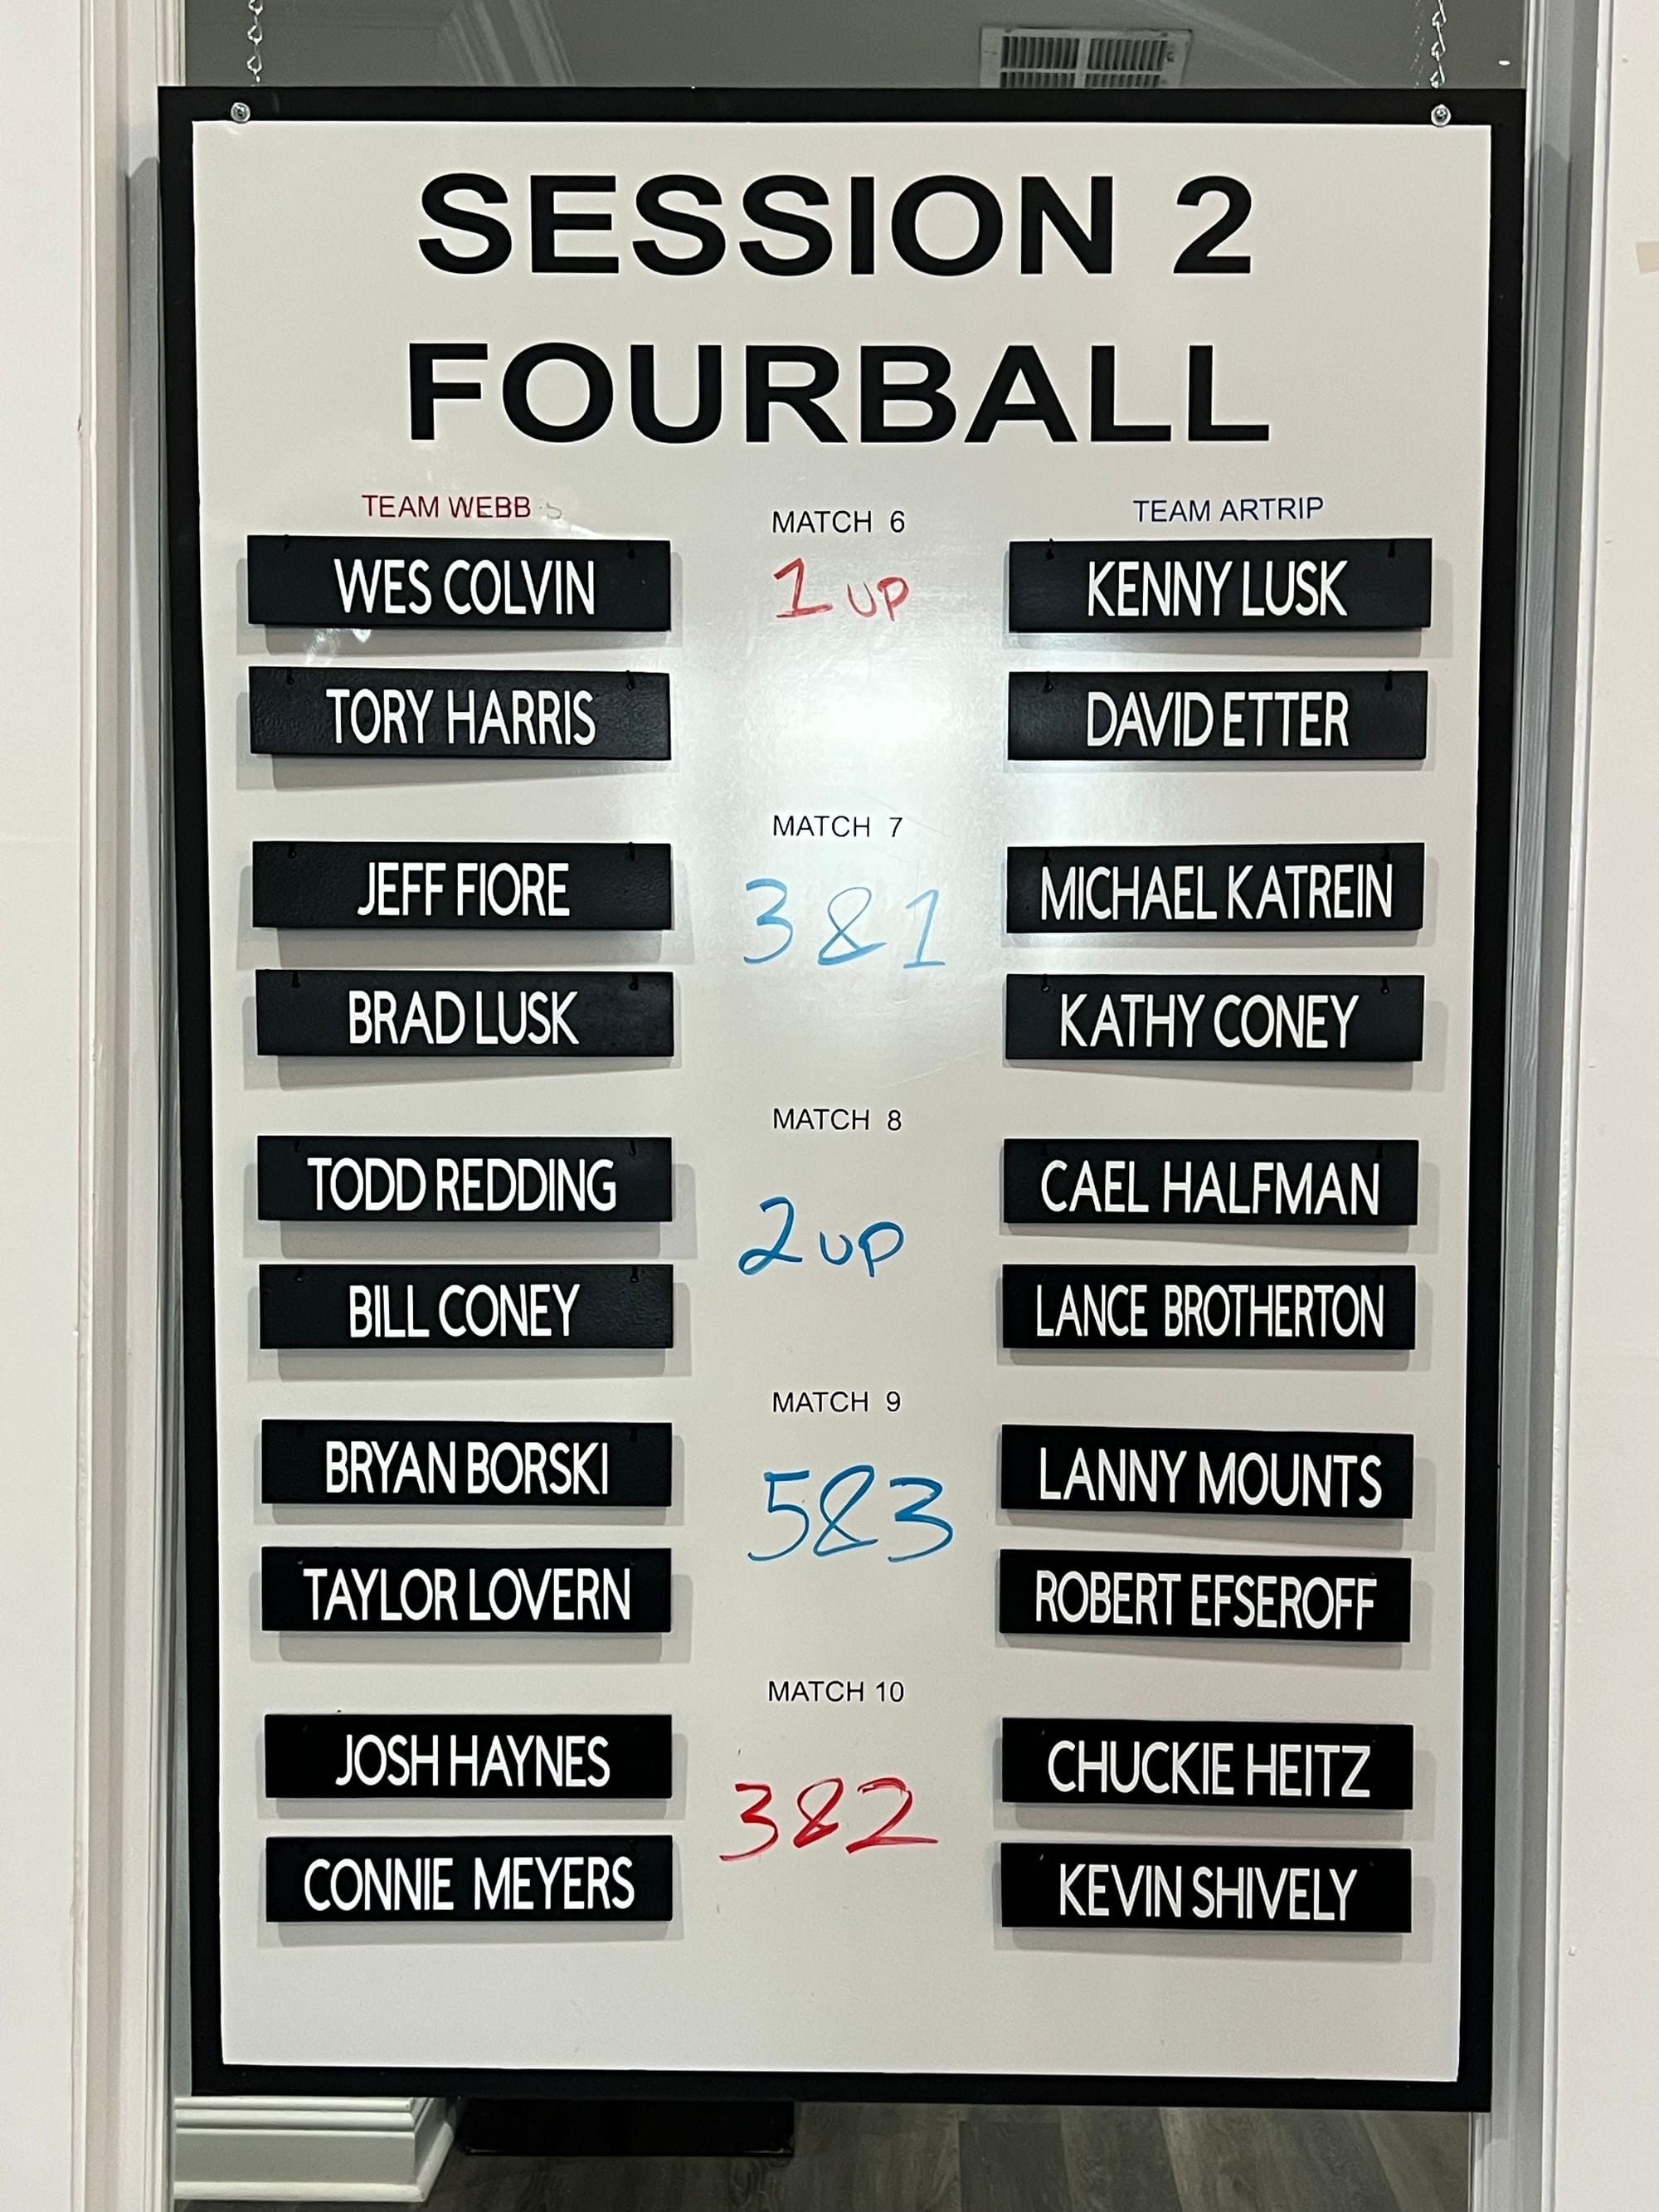 SESSION 2
FOURBALL
TEAM WEBB
TEAM ARTRIP
MATCH 6
WES COLVIN
1 UP
KENNY LUSK
TORY HARRIS
DAVID ETTER
MATCH 7
JEFF FIORE
3&1
MICHAEL KATREIN
BRAD LUSK
KATHY CONEY
MATCH 8
TODD REDDING
2 UP
CAEL HALFMAN
BILL CONEY
LANCE BROTHERTON
MATCH 9
BRYAN BORSKI
5&3
LANNY MOUNTS
TAYLOR LOVERN
ROBERT EFSEROFF
MATCH 10
JOSH HAYNES
3&2
CHUCKIE HEITZ
CONNIE MEYERS
KEVIN SHIVELY